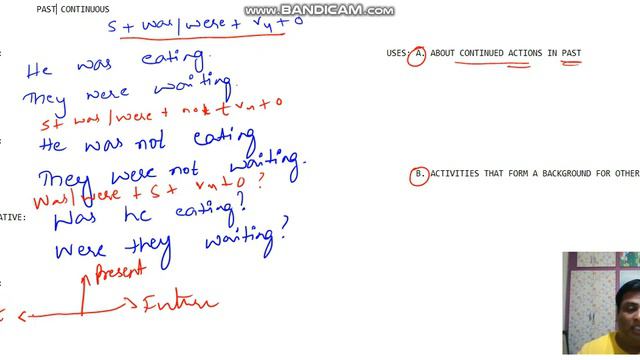 www.BANDICAM.com
PAST CONTINUOUS
S + was/were + v4 + O
He was eating.
They were waiting.
S + was/were + not + v4 + O
He was not eating
They were not waiting.
Was/were + S + v4 + O ?
ATIVE:
Was he eating?
Were they waiting?
Present
Future
USES: A. ABOUT CONTINUED ACTIONS IN PAST
B. ACTIVITIES THAT FORM A BACKGROUND FOR OTHER